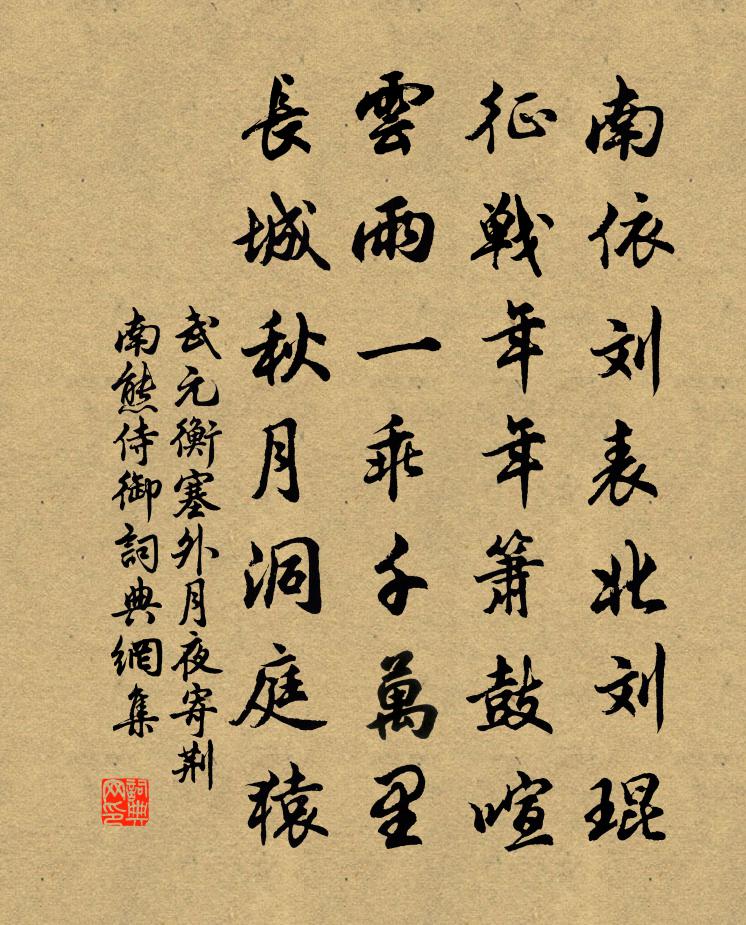 南依刘表北刘琨
征戰年年簫鼓喧
雲雨一乖千萬里
長城秋月洞庭猿
武元衡塞外月夜寄荆
南熊侍御詞典網集
詞典网印